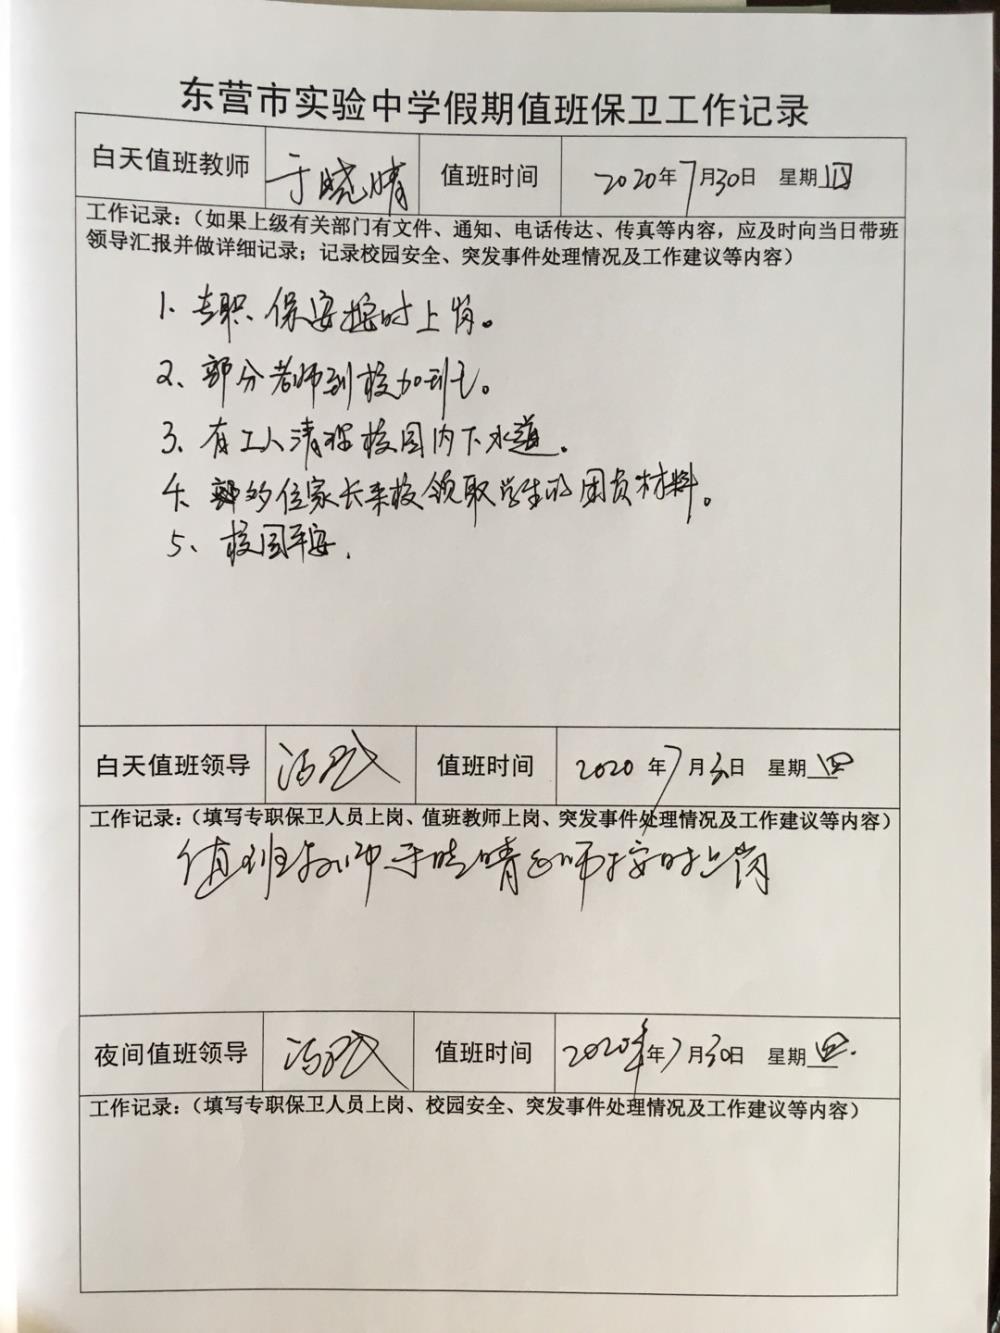 东营市实验中学假期值班保卫工作记录
白天值班教师 于晓晴 值班时间 2020年7月30日 星期四
工作记录：（如果上级有关部门有文件、通知、电话传达、传真等内容，应及时向当日带班
领导汇报并做详细记录；记录校园安全、突发事件处理情况及工作建议等内容）
1、专职保安按时上岗。
2、部分老师到校加班。
3、有工人清理校园内下水道。
4、多位家长来校领取学生的团员材料。
5、校园平安.
白天值班领导 值班时间 2020年7月30日 星期四
工作记录：（填写专职保卫人员上岗、值班教师上岗、突发事件处理情况及工作建议等内容）
值班教师于晓晴老师按时上岗
夜间值班领导 值班时间 2020年年7月30日 星期四.
工作记录：（填写专职保卫人员上岗、校园安全、突发事件处理情况及工作建议等内容）